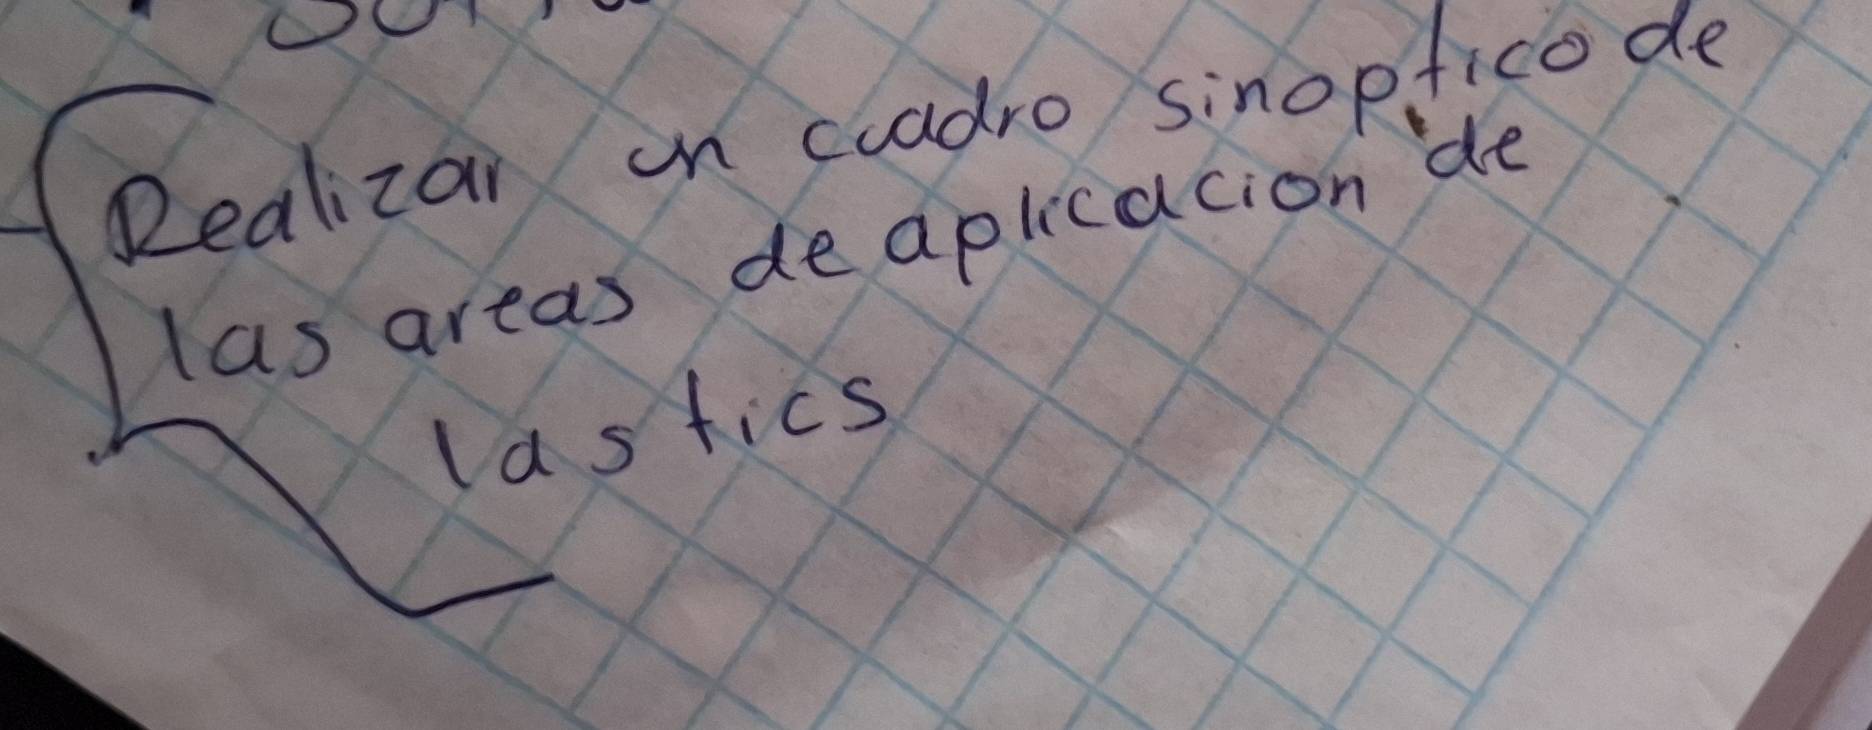 Realizar un cuadro sinoptico de
las areas de aplicacion de
las tics